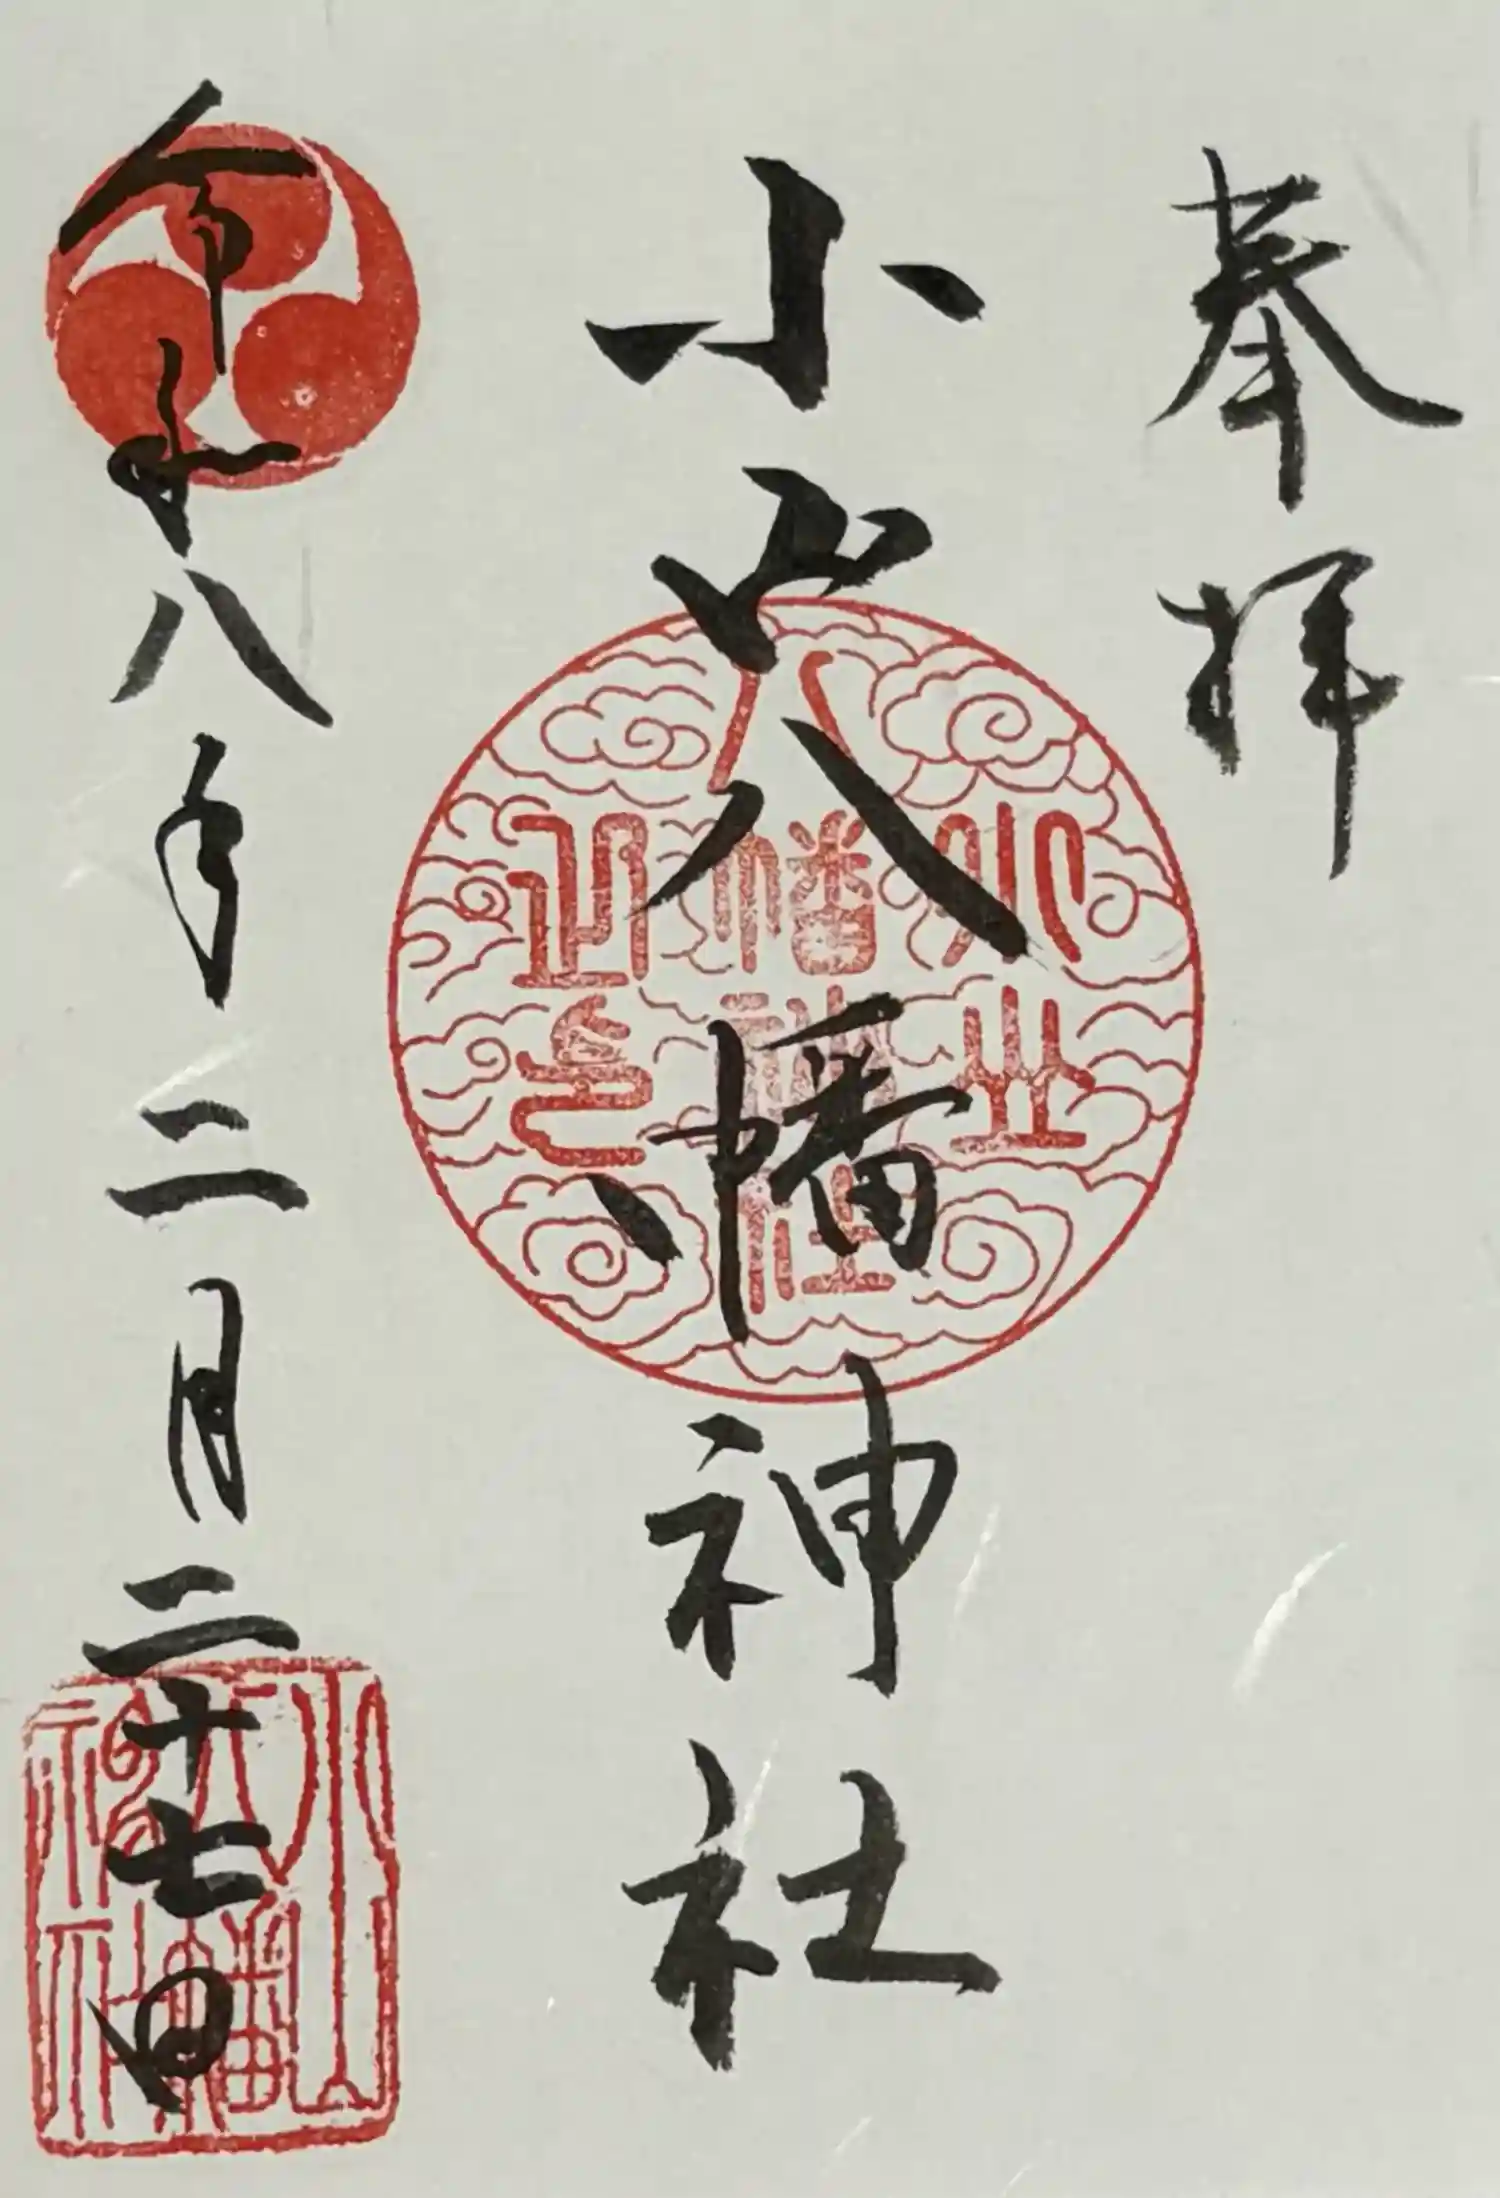 奉拝
小山八幡神社
令和八年二月二十七日
小山八幡神社印璽
小山八幡神社